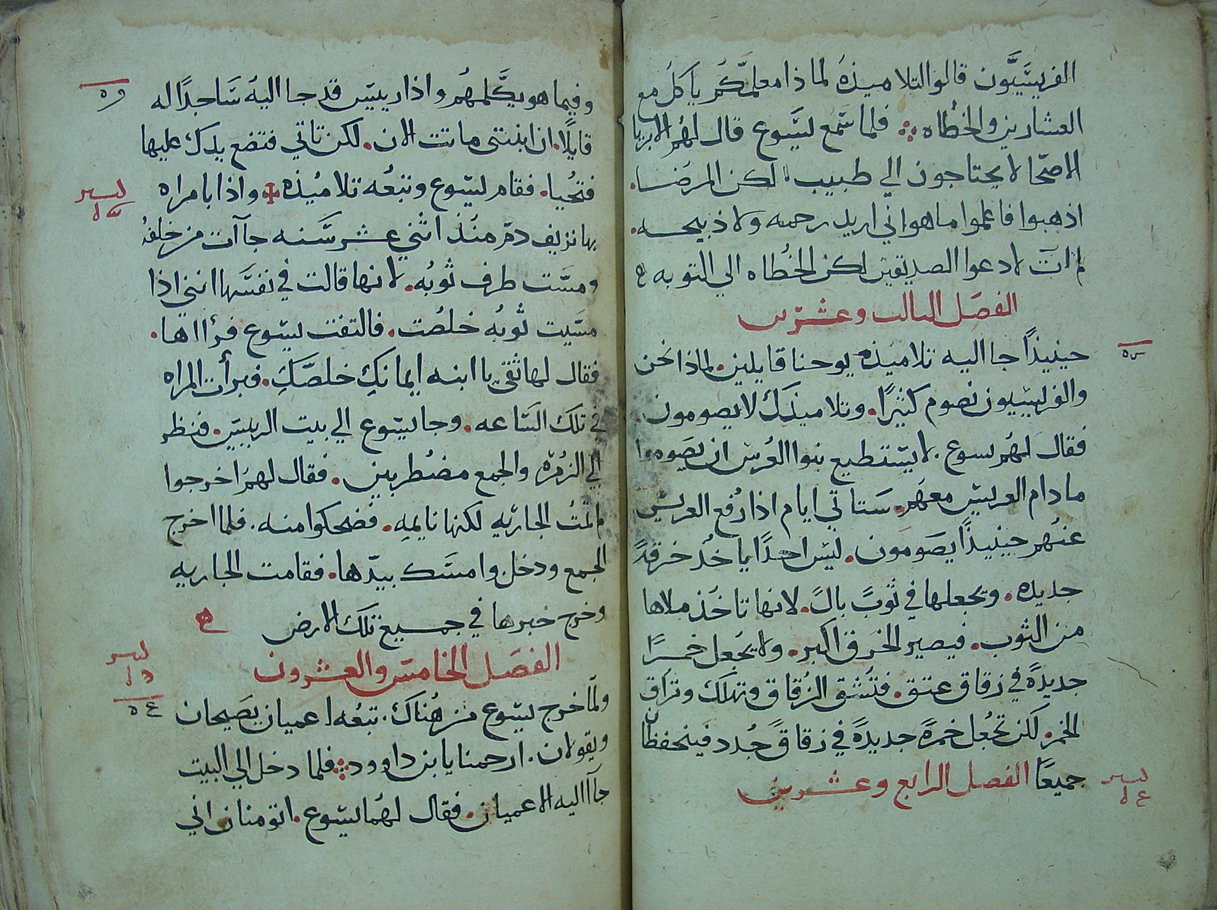 الفريسَيَّون قالوا لتلاميذهُ لماذا معلمكُم ياكلُ مع
العشارين والخطاه ❖ فلما سَمع ليسَوع قال لهُم الابريا
الاصحّا لا يحتاجون الي طبيب. لكن المرضا.
اذهبوا فاعلموا ما هو اني اريد رحمه ولا ذبيحه.
لم ات لادعوا الصديقين لكن الخُطاه الي التوبه
الفصَل الثالث وعشرين
حينيذاً جا اليه تلاميذه يوحنا قايلين. لماذا نحن
والفريسيون نصُوم كثيرًا. وتلاميذك لا يصومون.
فقال لهُم يسوع. لا يسَتطيع بنوا العُرس ان يصَوموا
ما دام العريسَ معهم. سَتاتي ايام اذا رُفع العريسَ
عنهُم حينيذاً يصَومون. ليسَ احداً ياخُد خرقةً
جديده. ويجعلها في ثوبً بالً. لانها تاخُذ ملاها
من الثوب. فيصير الخرق اكبر. ولا يجَعل خمرًا
جديدةً في زقاق عتق. فتُشق الزُقاق وتهلك وتراق
الخمر. لكن تجعُل خمرةً جديدةً في زقاقً جُدد فينحفظا
جميعًا الفصل الرابع وعشرين
وفيما هو يكَّلمهُم واذا رييسَ قد جا اليهُ سَاجداً له
قايلًا. ان ابنتي ماتت الان. لكن تاتي فتضع يدك عليها
فتحُيا. فقام ليسَوع وتبعُه تلاميُذه ✣ واذا بامراه
بها نزيف دمّ منُذ اثني عشر سَنه جاآت من خلفهُ
ومسَّت طرف ثوبُه. لانها قالت في نفسَها انني اذا
مسَيت ثوبُه خلصُت. فالتفت ليسَوع فرااها.
فقال لها ثقي يا ابنه ايمانكِ خلصَّكِ. فبرأت المراه
في تلك السَاعه. وجا ليسَوع الي بيت الرييسَ. فنظر
الي الزمرُه والجمع مضطُربين. فقال لهمُ اخرجوا
ما تمُت الجاريه لكنها نايمهِ. فضحكوا منه. فلما اخرج
الجمع ودخل وامسَك بيدّها. فقامت الجاريه
وخرج خبرها في جميع تلك الارض
الفصَل الخامسَ والعشرون
ولمّا خرج ليسَوع من هُناك. تبعُه اعميان يصَيحان
ويقولان. ارحمنا يابن داوود ❖ فلما دخل الي البيت
جاآ اليه الاعميان. فقال لهُما ليسَوع. اتومنان اني